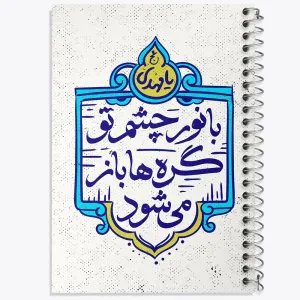 یا مهدی
با نور چشم تو
گره ها باز
می شود